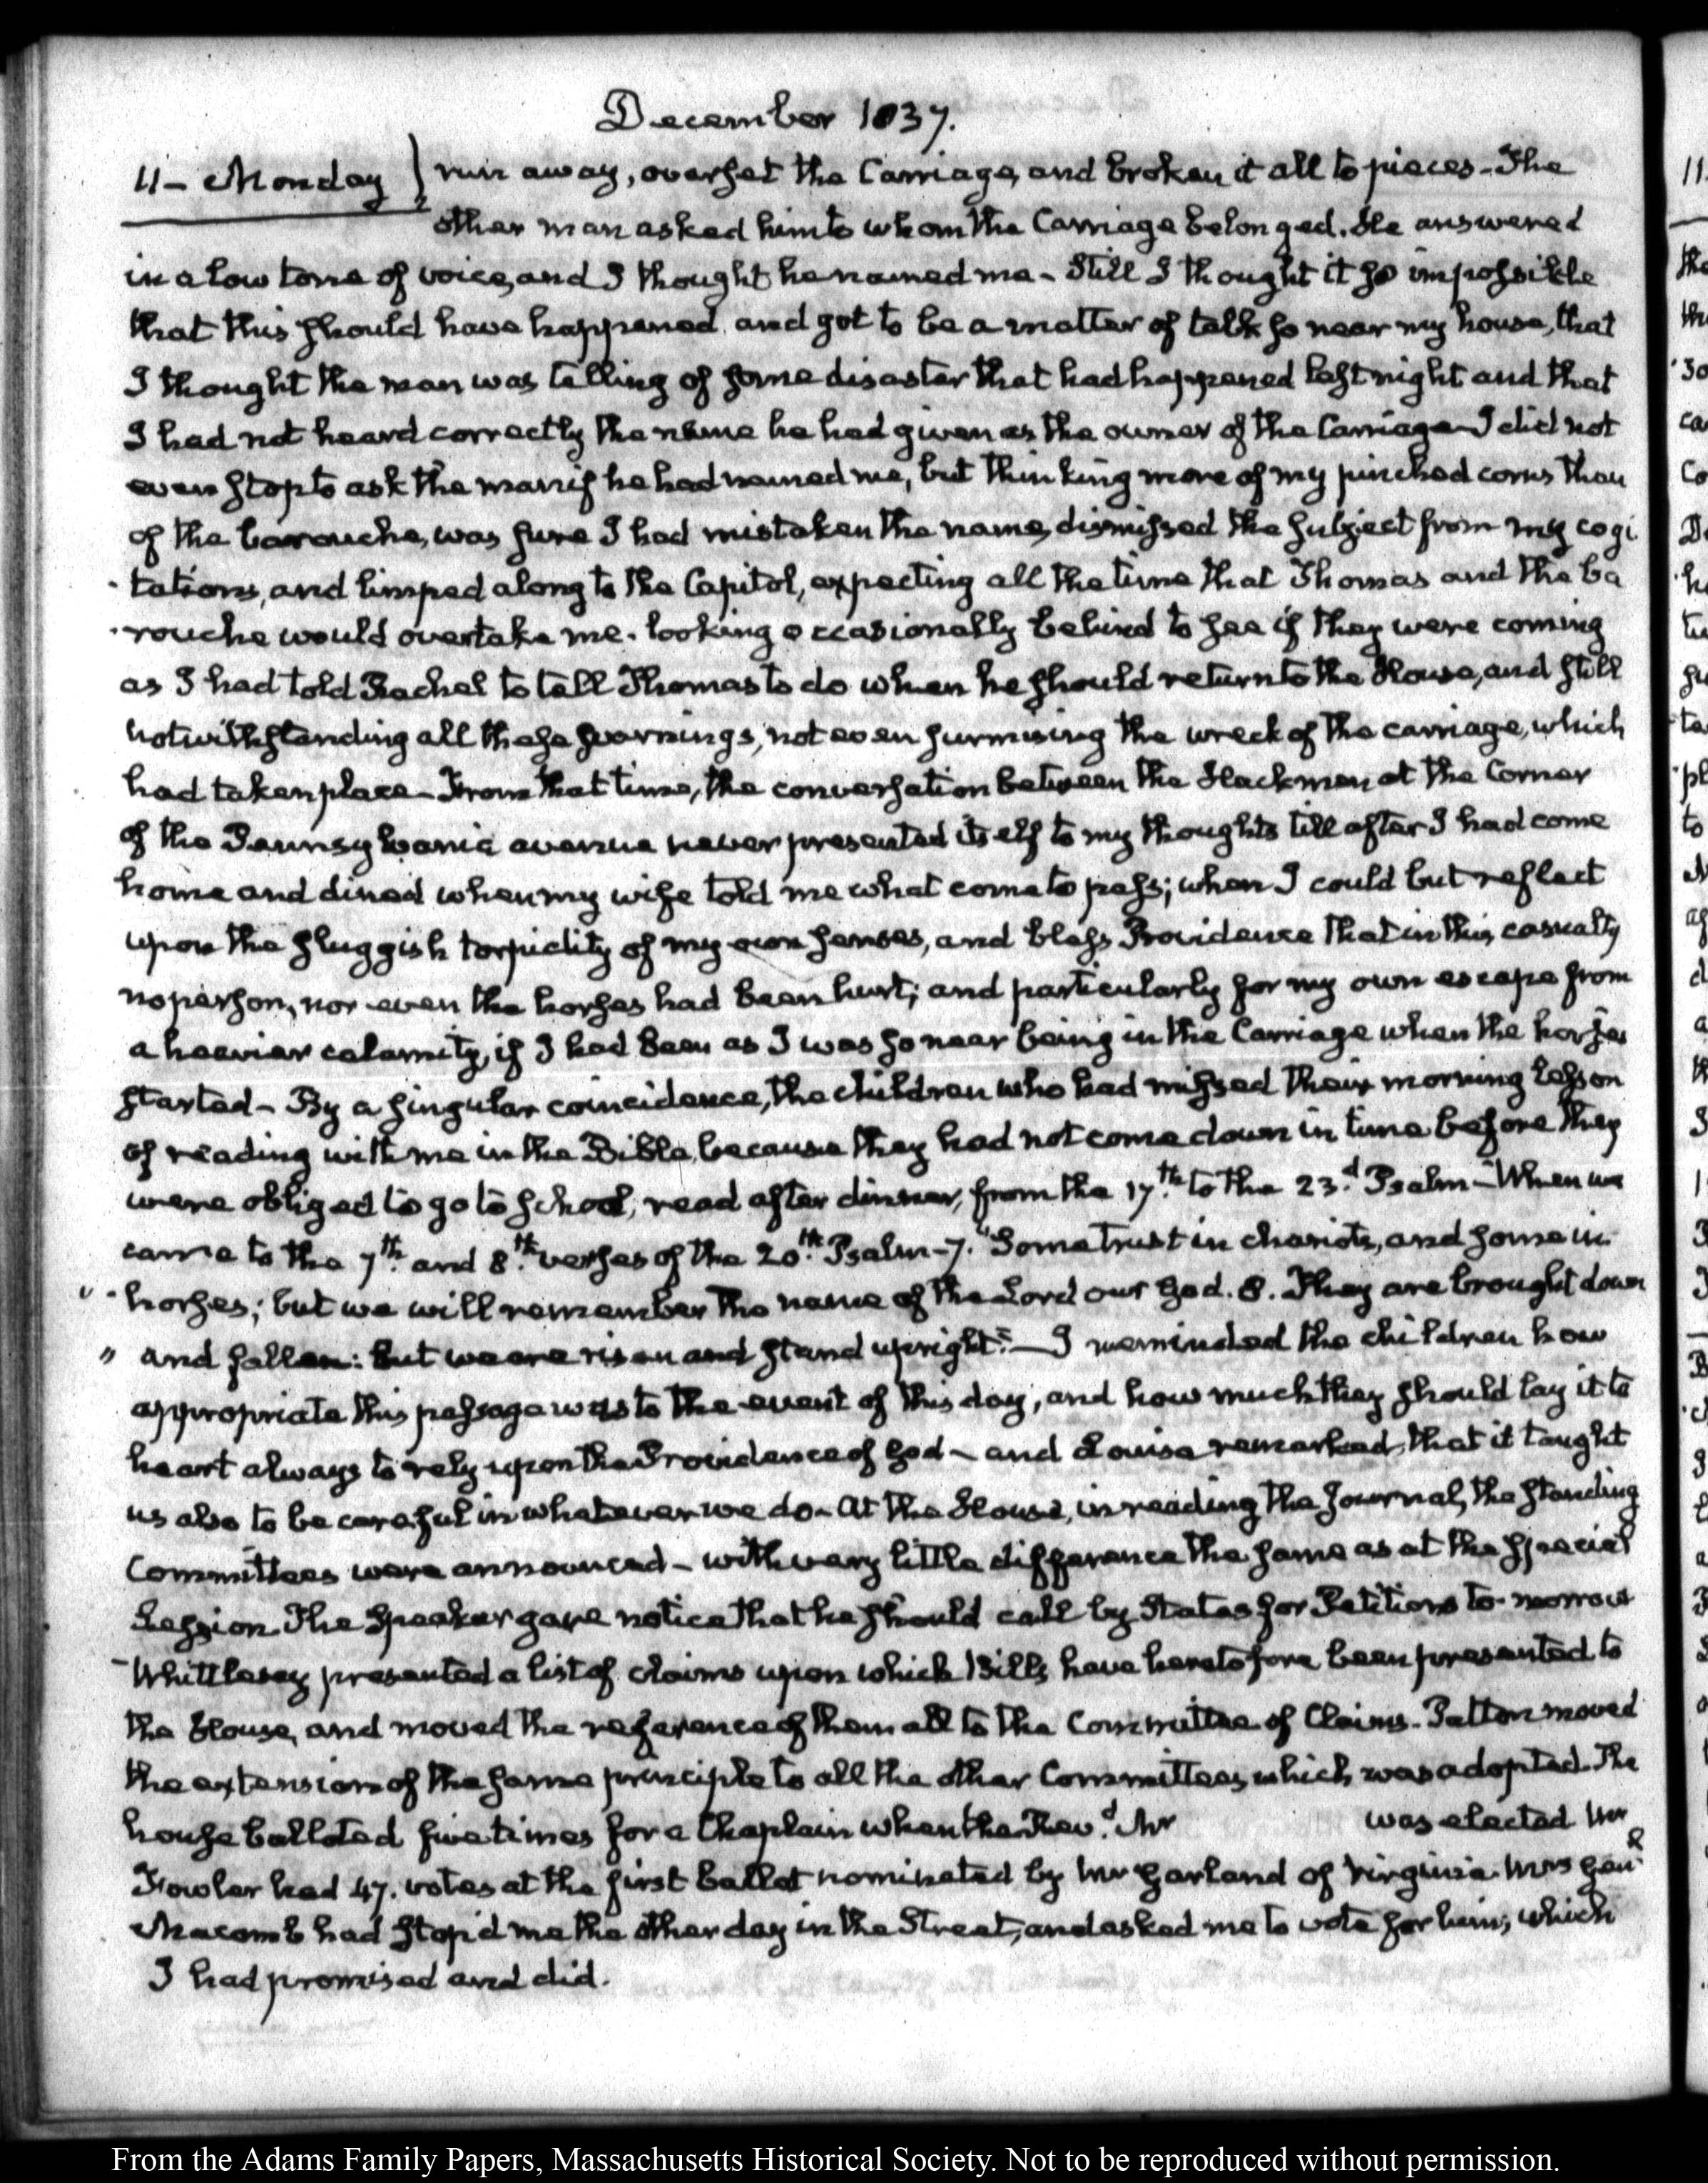 December 1837.
11 – Monday } run away, overset the Carriage, and broken it all to pieces – The
other man asked him to whom the Carriage belonged. He answered
in a low tone of voice, and I thought he named me – Still I thought it so impossible
that this should have happened, and got to be a matter of talk so near my house, that
I thought the man was telling of some disaster that had happened last night and that
I had not heard correctly the name he had given as the owner of the Carriage – I did not
even stop to ask the man if he had named me, but thinking more of my pinched corns than
of the barouche, was sure I had mistaken the name, dismissed the subject from my cogi
- tations, and limped along to the Capitol, expecting all the time that Thomas and the ba
- rouche would overtake me. looking occasionally behind to see if they were coming
as I had told Rachel to tell Thomas to do when he should return to the House, and still
notwithstanding all these warnings, not even surmising the wreck of the carriage, which
had taken place – From that time, the conversation between the Hackmen at the Corner
of the Pennsylvania avenue never presented itself to my thoughts till after I had come
home and dined when my wife told me what come to pass; when I could but reflect
upon the sluggish torpidity of my own senses, and bless Providence that in this casualty
no person, nor even the horses had been hurt; and particularly for my own escape from
a heavier calamity, if I had been as I was so near being in the Carriage when the horses
started – By a singular coincidence, the children who had missed their morning lesson
of reading with me in the Bible, because they had not come down in time before they
were obliged to go to school, read after dinner, from the 17.th to the 23.d Psalm – When we
came to the 7.th and 8.th verses of the 20.th Psalm – 7. "Some trust in chariots, and some in
" horses; but we will remember the name of the Lord our God. 8. They are brought down
" and fallen: but we are risen and stand upright." – I reminded the children how
appropriate this passage was to the event of this day, and how much they should lay it to
heart always to rely upon the Providence of God – and Louisa remarked, that it taught
us also to be careful in whatever we do – At the House, in reading the Journal, the standing
Committees were announced – with very little difference the same as at the special
Session. The Speaker gave notice that he should call by States for Petitions to-morrow
- Whittlesey presented a list of claims upon which Bills have heretofore been presented to
the House, and moved the reference of them all to the Committee of Claims – Patton moved
the extension of the same principle to all the other Committees, which was adopted. The
house balloted five times for a Chaplain when the Rev.d Mr was elected Mr
Fowler had 47. votes at the first ballot nominated by Mr Garland of Virginia. Mrs Genl
Macomb had stop'd me the other day in the Street, and asked me to vote for him; which
I had promised and did.
From the Adams Family Papers, Massachusetts Historical Society. Not to be reproduced without permission.